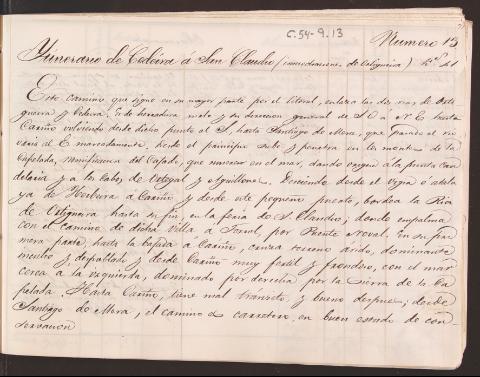 C.54-9.13
Numero 13
Itinerario de Cedeira á San Claudio (inmediaciones de Ortigueira)
Este camino que sigue en su mayor parte por el litoral, enlaza las dos rias de Orti
gueira y Cedeira. Es de herradura, malo y su direccion general de S.O. a N.E. hasta
Cariño volviendo desde dicho punto al S. hasta Santiago de Mera, que
al E. marcadamente. Desde el principio sube y penetra en los montes de la
Capelada, ramificacion del que muere en el mar, dando origen á la punta Can
delaria y a los Cabos de Ortegal y Aguillones. Desciende desde el Vigia ó atala
ya de Herbeira a Cariño y desde este pequeño puerto, bordea la Ria
de Ortigueira hasta su fin, en la feria de S. Claudio; donde empalma
con el camino de dicha villa a Ferrol, por Puente Neval. En su pri
mera parte, hasta la bajada a Cariño, cruza terreno árido, dominante
inculto y despoblado y desde Cariño muy fertil y frondoso, con el mar
cerca a la izquierda, dominado por derecha por la sierra de la Ca
pelada. Hasta Cariño, tiene mal transito y bueno despues; desde
Santiago de Mera, el camino es carretero en buen estado de con-
servacion